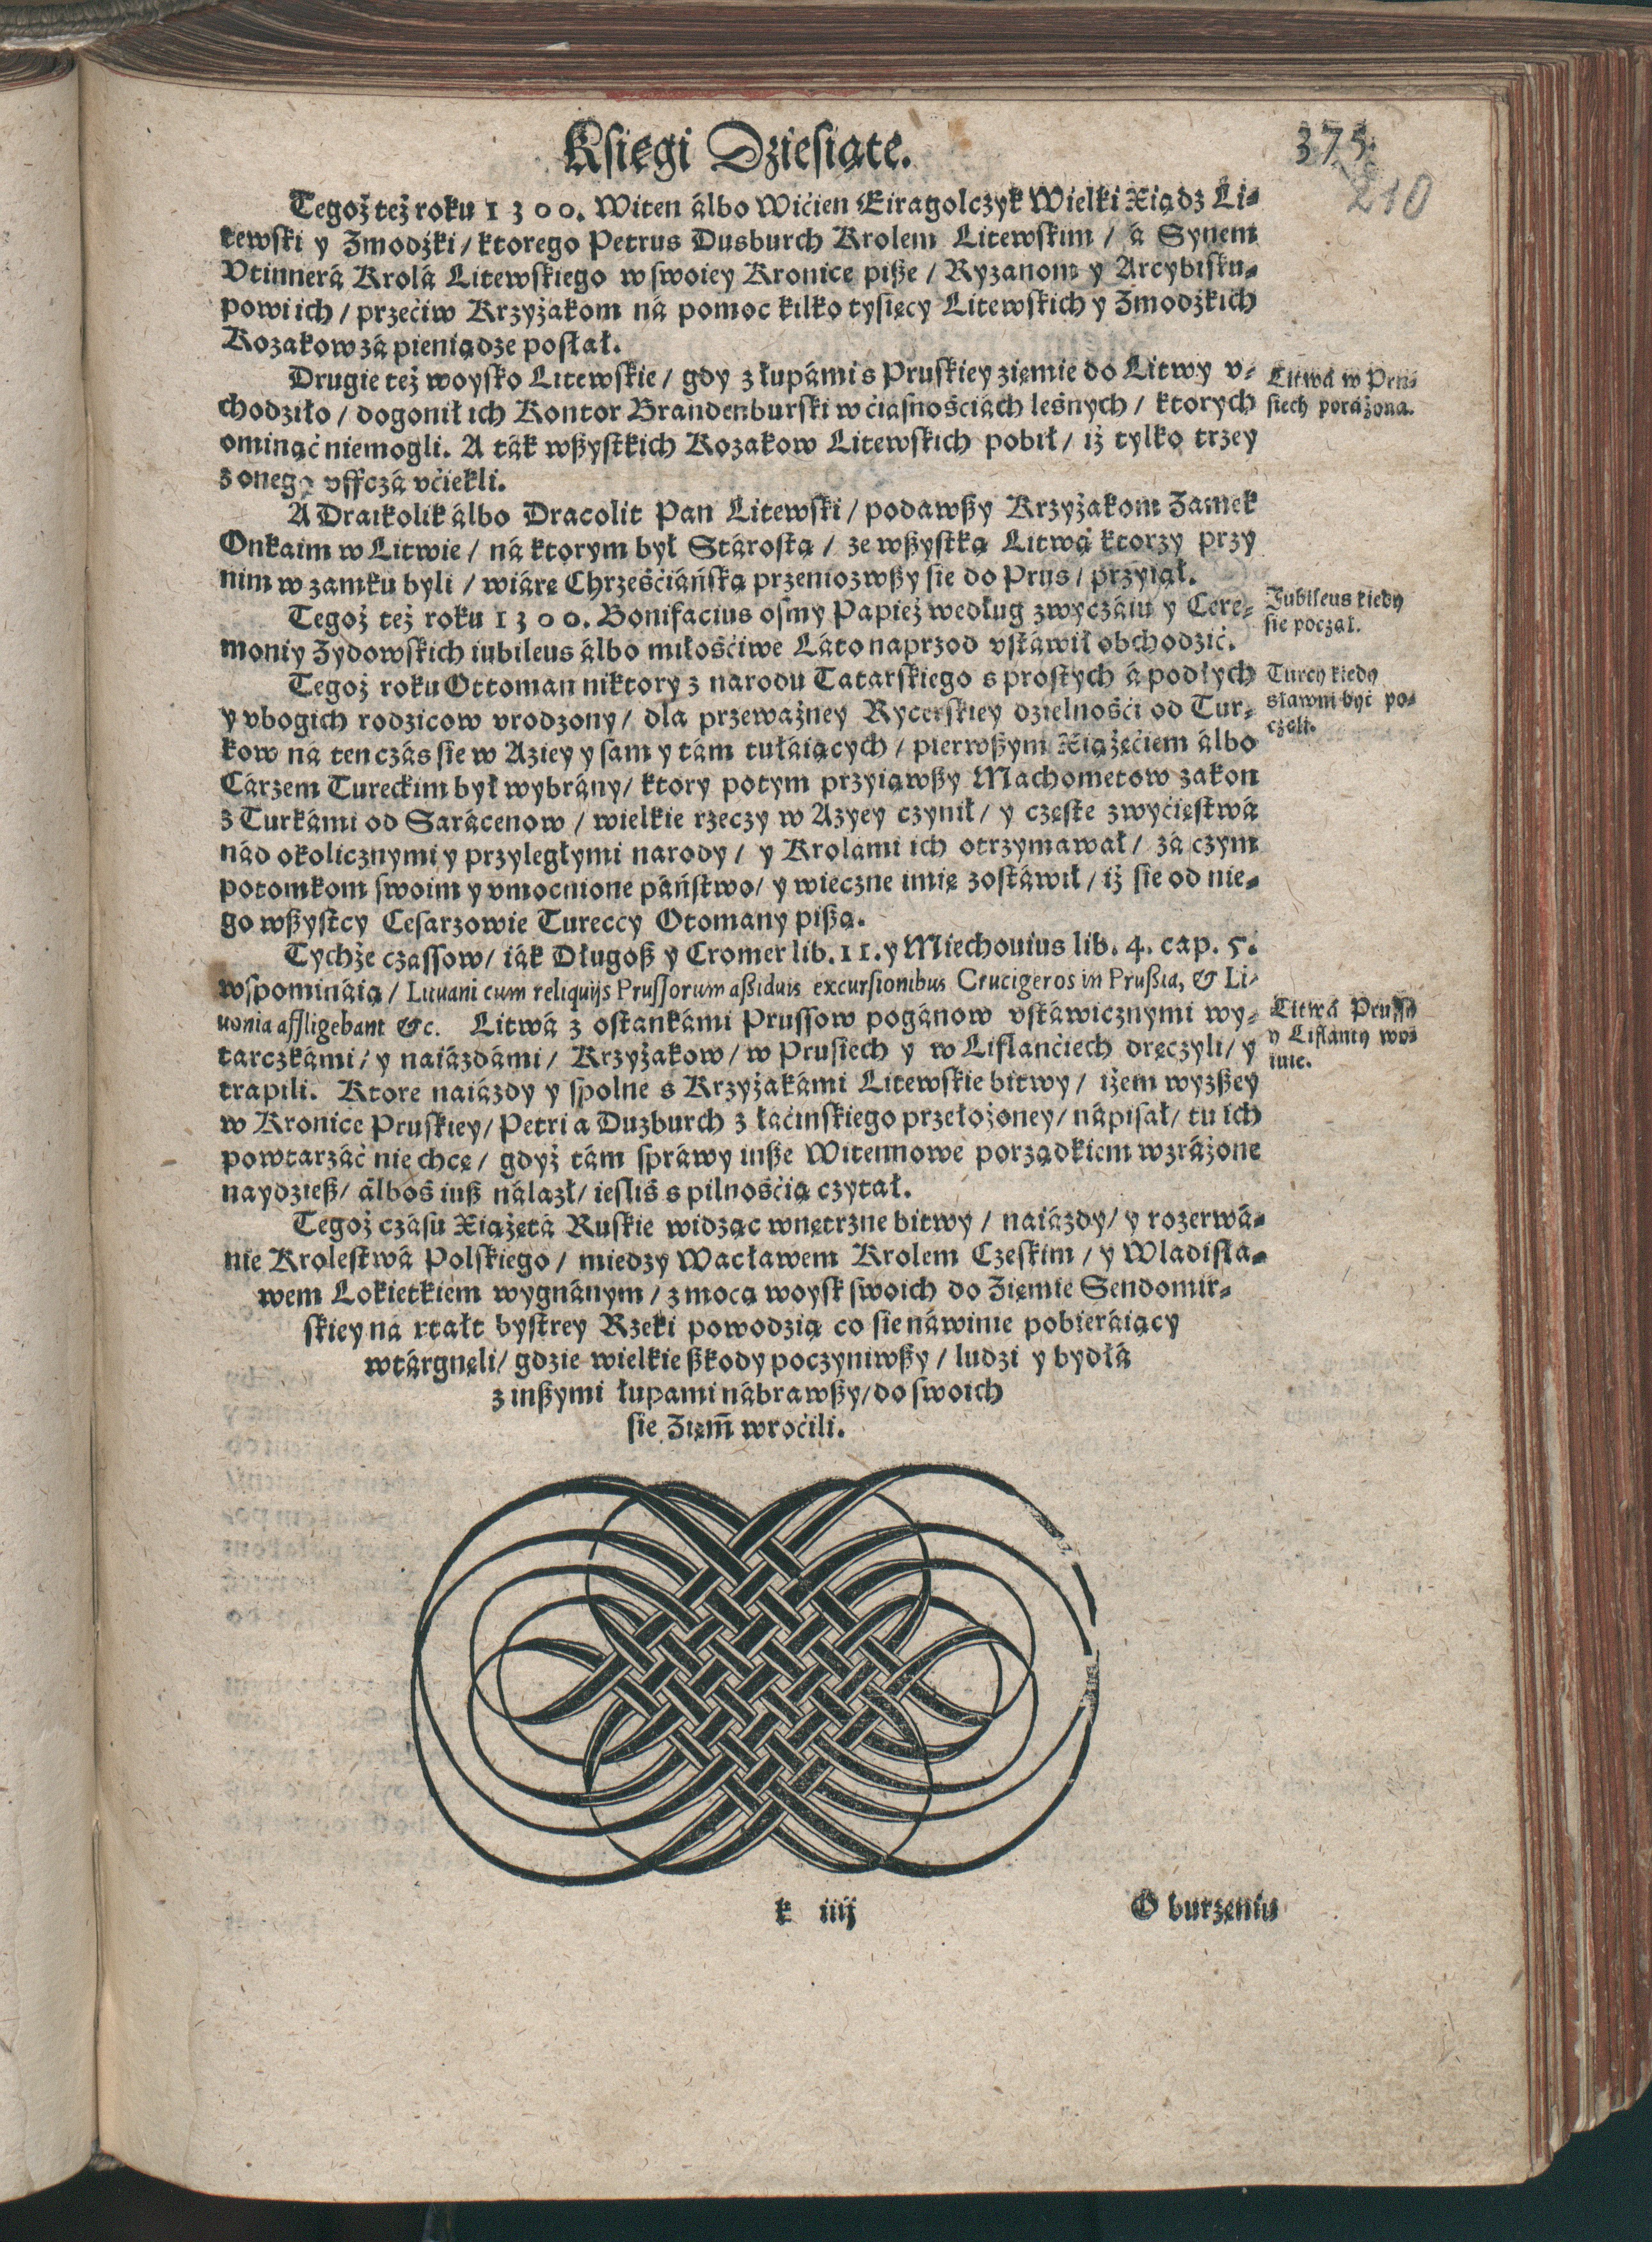 Księgi Dziesiąte.
375.
210
Tegoż też roku 1300. Witen álbo Wićien Eiragolczyk Wielki Xiądz Li-
tewski y Zmodźki / ktorego Petrus Dusburch Krolem Litewskim / á Synem
Vtinnerá Krolá Litewskiego w swoiey Kronice pisze / Ryzanom y Arcybisku-
powi ich / przećiw Krzyżakom ná pomoc kilko tysięcy Litewskich y Zmodźkich
Kozakow zá pieniądze posłał.
Drugie też woysko Litewskie / gdy z łupámi s Pruskiey ziemie do Litwy v-
chodziło / dogonił ich Kontor Brandenburski w ćiasnośćiách leśnych / ktorych
ominąć niemogli. A ták wszystkich Kozakow Litewskich pobił / iż tylko trzey
z onego vffczá vćiekli.
Litwá w Pru-
siech poráżona.
A Draikolik álbo Dracolit Pan Litewski / podawszy Krzyżakom Zamek
Onkaim w Litwie / ná ktorym był Stárostą / ze wszystką Litwą ktorzy przy
nim w zamku byli / wiárę Chrześćiáńską przeniozwszy sie do Prus / przyiął.
Tegoż też roku 1300. Bonifacius osmy Papież według zwyczáiu y Cere-
moniy Zydowskich iubileus álbo miłośćiwe Láto naprzod vstáwił obchodzić.
Jubileus kiedy
sie począł.
Tegoż roku Ottoman niktory z narodu Tatarskiego s prostych á podłych
y vbogich rodzicow vrodzony / dla przeważney Rycerskiey dzielnośći od Tur-
kow ná ten czás sie w Aziey y sam y tám tułáiących / pierwszym Xiążęćiem álbo
Cárzem Tureckim był wybrány / ktory potym przyiąwszy Machometow zakon
z Turkámi od Sarácenow / wielkie rzeczy w Azyey czynił / y częste zwyćięstwá
nád okolicznymi y przyległymi narody / y Krolami ich otrzymawał / zá czym
potomkom swoim y vmocnione páństwo / y wieczne imię zostáwił / iż sie od nie-
go wszyстcy Cesarzowie Tureccy Otomany piszą.
Turcy kiedy
sławni być po-
częli.
Tychże czassow / iák Długosz y Cromer lib. 11. y Miechouius lib. 4. cap. 5.
wspomináią / Lituani cum reliquijs Prussorum aßiduis excursionibus Crucigeros in Prußia, & Li-
uonia affligebant &c. Litwá z ostankámi Prussow pogánow vstáwicznymi wy-
tarczkámi / y naiázdámi / Krzyżakow / w Prusiech y w Liflanćiech dręczyli / y
trapili. Ktore naiázdy y spolne s Krzyżakámi Litewskie bitwy / iżem wyższey
w Kronice Pruskiey / Petri a Duzburch z łáćinskiego przełożoney / nápisał / tu ich
powtarzáć nie chcę / gdyż tám spráwy insze Witennowe porządkiem wzráżone
naydziesz / álboś iusz nálazł / iesliś s pilnośćią czytał.
Litwá Prussy
y Liflanty woi-
uie.
Tegoż czásu Xiążętá Ruskie widząc wnętrzne bitwy / naiázdy / y rozerwá-
nie Krolestwá Polskiego / miedzy Wacławem Krolem Czeskim / y Wladisła-
wem Lokietkiem wygnánym / z mocą woysk swoich do Ziemie Sendomir-
skiey ná xtałt bystrey Rzeki powodzią co sie náwinie pobieráiący
wtárgnęli / gdzie wielkie szkody poczyniwszy / ludzi y bydłá
z inszymi łupami nábrawszy / do swoich
sie Ziem̄ wroćili.
k iiij
O burzeniu